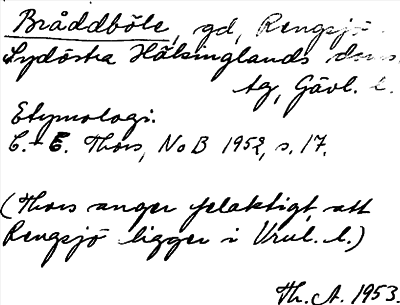 Bråddböle, gd, Rengsjö
Sydöstra Hälsinglands doms.
tg, Gävl. l.
Etymologi.
C.-E. Thors, NoB 1952, s. 17.
(Thors anger felaktigt att
Rengsjö ligger i Vrml. l.)
Th. A. 1953.